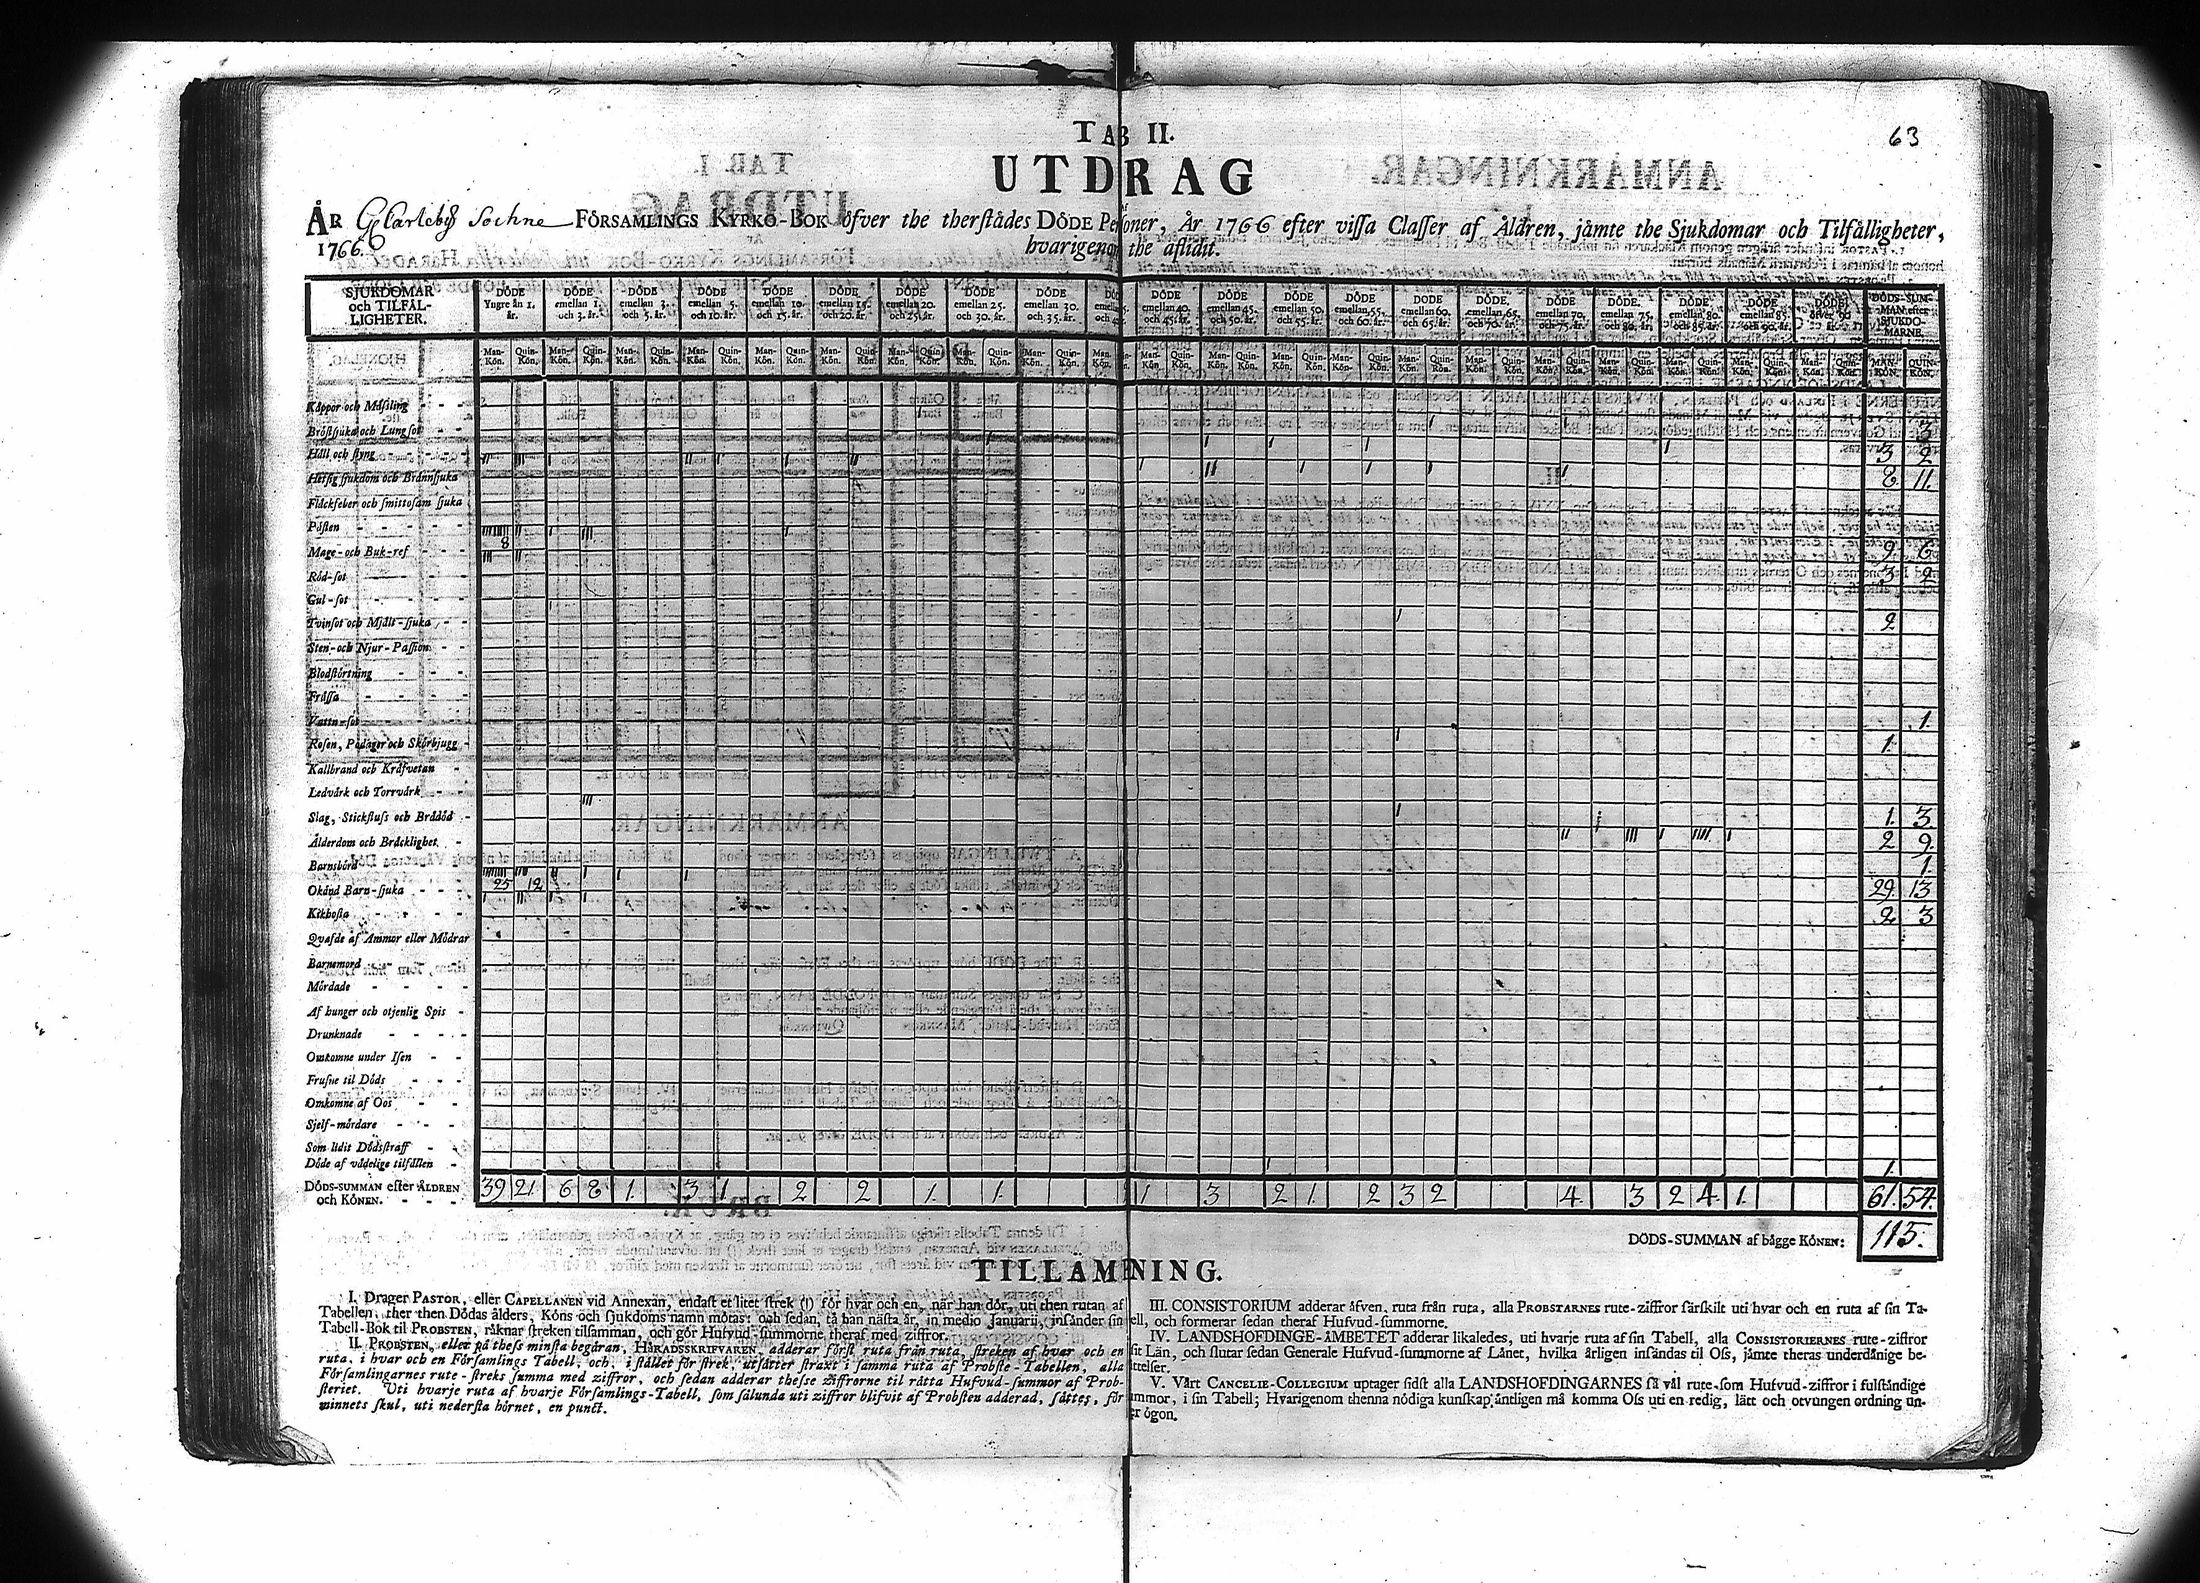 TAB II.
63
UTDRAG
ÅR Glearleby Sochne FÖRSAMLINGS KYRKO-BOK öfver the therstådes DÖDE Personer, År 1766 efter vissa Classer af Åldren, jämte the Sjukdomar och Tilfälligheter,
1766.
hvarigenom the aflidit.
SJUKDOMAR och TILFÄLLIGHETER.
DÖDE Yngre än 1. år.
DÖDE emellan 1. och 3. år.
DÖDE emellan 3. och 5. år.
DÖDE emellan 5. och 10. år.
DÖDE emellan 10. och 15. år.
DÖDE emellan 15. och 20. år.
DÖDE emellan 20. och 25. år.
DÖDE emellan 25. och 30. år.
DÖDE emellan 30. och 35. år.
DÖDE emellan 40. och 45. år.
DÖDE emellan 45. och 50. år.
DÖDE emellan 50. och 55. år.
DÖDE emellan 55. och 60. år.
DÖDE emellan 60. och 65. år.
DÖDE emellan 65. och 70. år.
DÖDE emellan 70. och 75. år.
DÖDE emellan 75. och 80. år.
DÖDE emellan 80. och 85. år.
DÖDE emellan 85. och 90. år.
DÖDE öfver 90 år.
DÖDS-SUMMAN efter SJUKDOMARNE.
Man-Kön. Quin-Kön.
Koppor och Mässling
Bröstsjuka och Lungsot 3
Håll och styng 3 2
Hetsig sjukdom och Brännsjuka 8. 11.
Fläckfeber och smittosam sjuka
Påsten
Mage- och Buk-ref 8 9. 6
Röd-sot 3 2
Gul-sot
Tvinsot och Mjält-sjuka 2
Sten- och Njur-Passion
Blodstörtning
Frossa
Vattu-sot 1.
Rosen, Podager och Skörbjugg 1.
Kallbrand och Kräfvetan
Ledvärk och Torrvärk
Slag, Stickfluss och Brådöd 1. 3
Ålderdom och Bräcklighet 2 9.
Barnsbörd 1.
Okänd Barn-sjuka 25 12 29. 13
Kikhosta 2 3
Qvafde af Ammor eller Mödrar
Barnamord
Mördade
Af hunger och otjenlig Spis
Drunknade
Omkomne under Isen
Frusne til Döds
Omkomne af Oos
Sjelf-mördare
Som lidit Dödsstraff
Döde af vådelige tilfällen 1.
DÖDS-SUMMAN efter ÅLDREN och KÖNEN. 39 21. 6 8 1. 3 1. 2 2 1. 1. 1 3 2 1. 2 3 2 4. 3 2 4. 1. 61. 54.
DÖDS-SUMMAN af bägge KÖNEN: 115.
TILLÄMNING.
I. Drager PASTOR, eller CAPELLANEN vid Annexan, endast et litet strek (I) för hvar och en, när han dör, uti then rutan af
Tabellen, ther then Dödas ålders, Köns och sjukdoms namn mötas: och sedan, tå han nästa år, in medio Januarii, insänder sin
Tabell-Bok til PROBSTEN, räknar streken tilsamman, och gör Hufvud-summorne theraf med ziffror.
II. PROBSTEN, eller på thess minsta begäran, HÄRADSSKRIFVAREN, adderar först ruta från ruta, streken af hvar och en
ruta, i hvar och en Församlings Tabell, och, i stället för strek, utsätter straxt i samma ruta af Probste-Tabellen, alla
Församlingarnes rute-streks summa med ziffror, och sedan adderar thesse Ziffrorne til rätta Hufvud-summor af Prob-
steriet. Uti hvarje ruta af hvarje Församlings-Tabell, som sålunda uti ziffror blifvit af Probsten adderad, sättes, för
minnets skul, uti nedersta hörnet, en punct.
III. CONSISTORIUM adderar äfven, ruta från ruta, alla PROBSTARNES rute-ziffror särskilt uti hvar och en ruta af sin Ta-
ell, och formerar sedan theraf Hufvud-summorne.
IV. LANDSHÖFDINGE-ÄMBETET adderar likaledes, uti hvarje ruta af sin Tabell, alla CONSISTORIERNES rute-ziffror
sit Län, och slutar sedan Generale Hufvud-summorne af Länet, hvilka årligen insändas til Oss, jämte theras underdånige be-
ättelser.
V. Vårt CANCELIE-COLLEGIUM uptager sidst alla LANDSHÖFDINGARNES så väl rute-som Hufvud-ziffror i fulständige
ummor, i sin Tabell; Hvarigenom thenna nödiga kunskap äntligen må komma Oss uti en redig, lätt och otvungen ordning un-
er ögon.